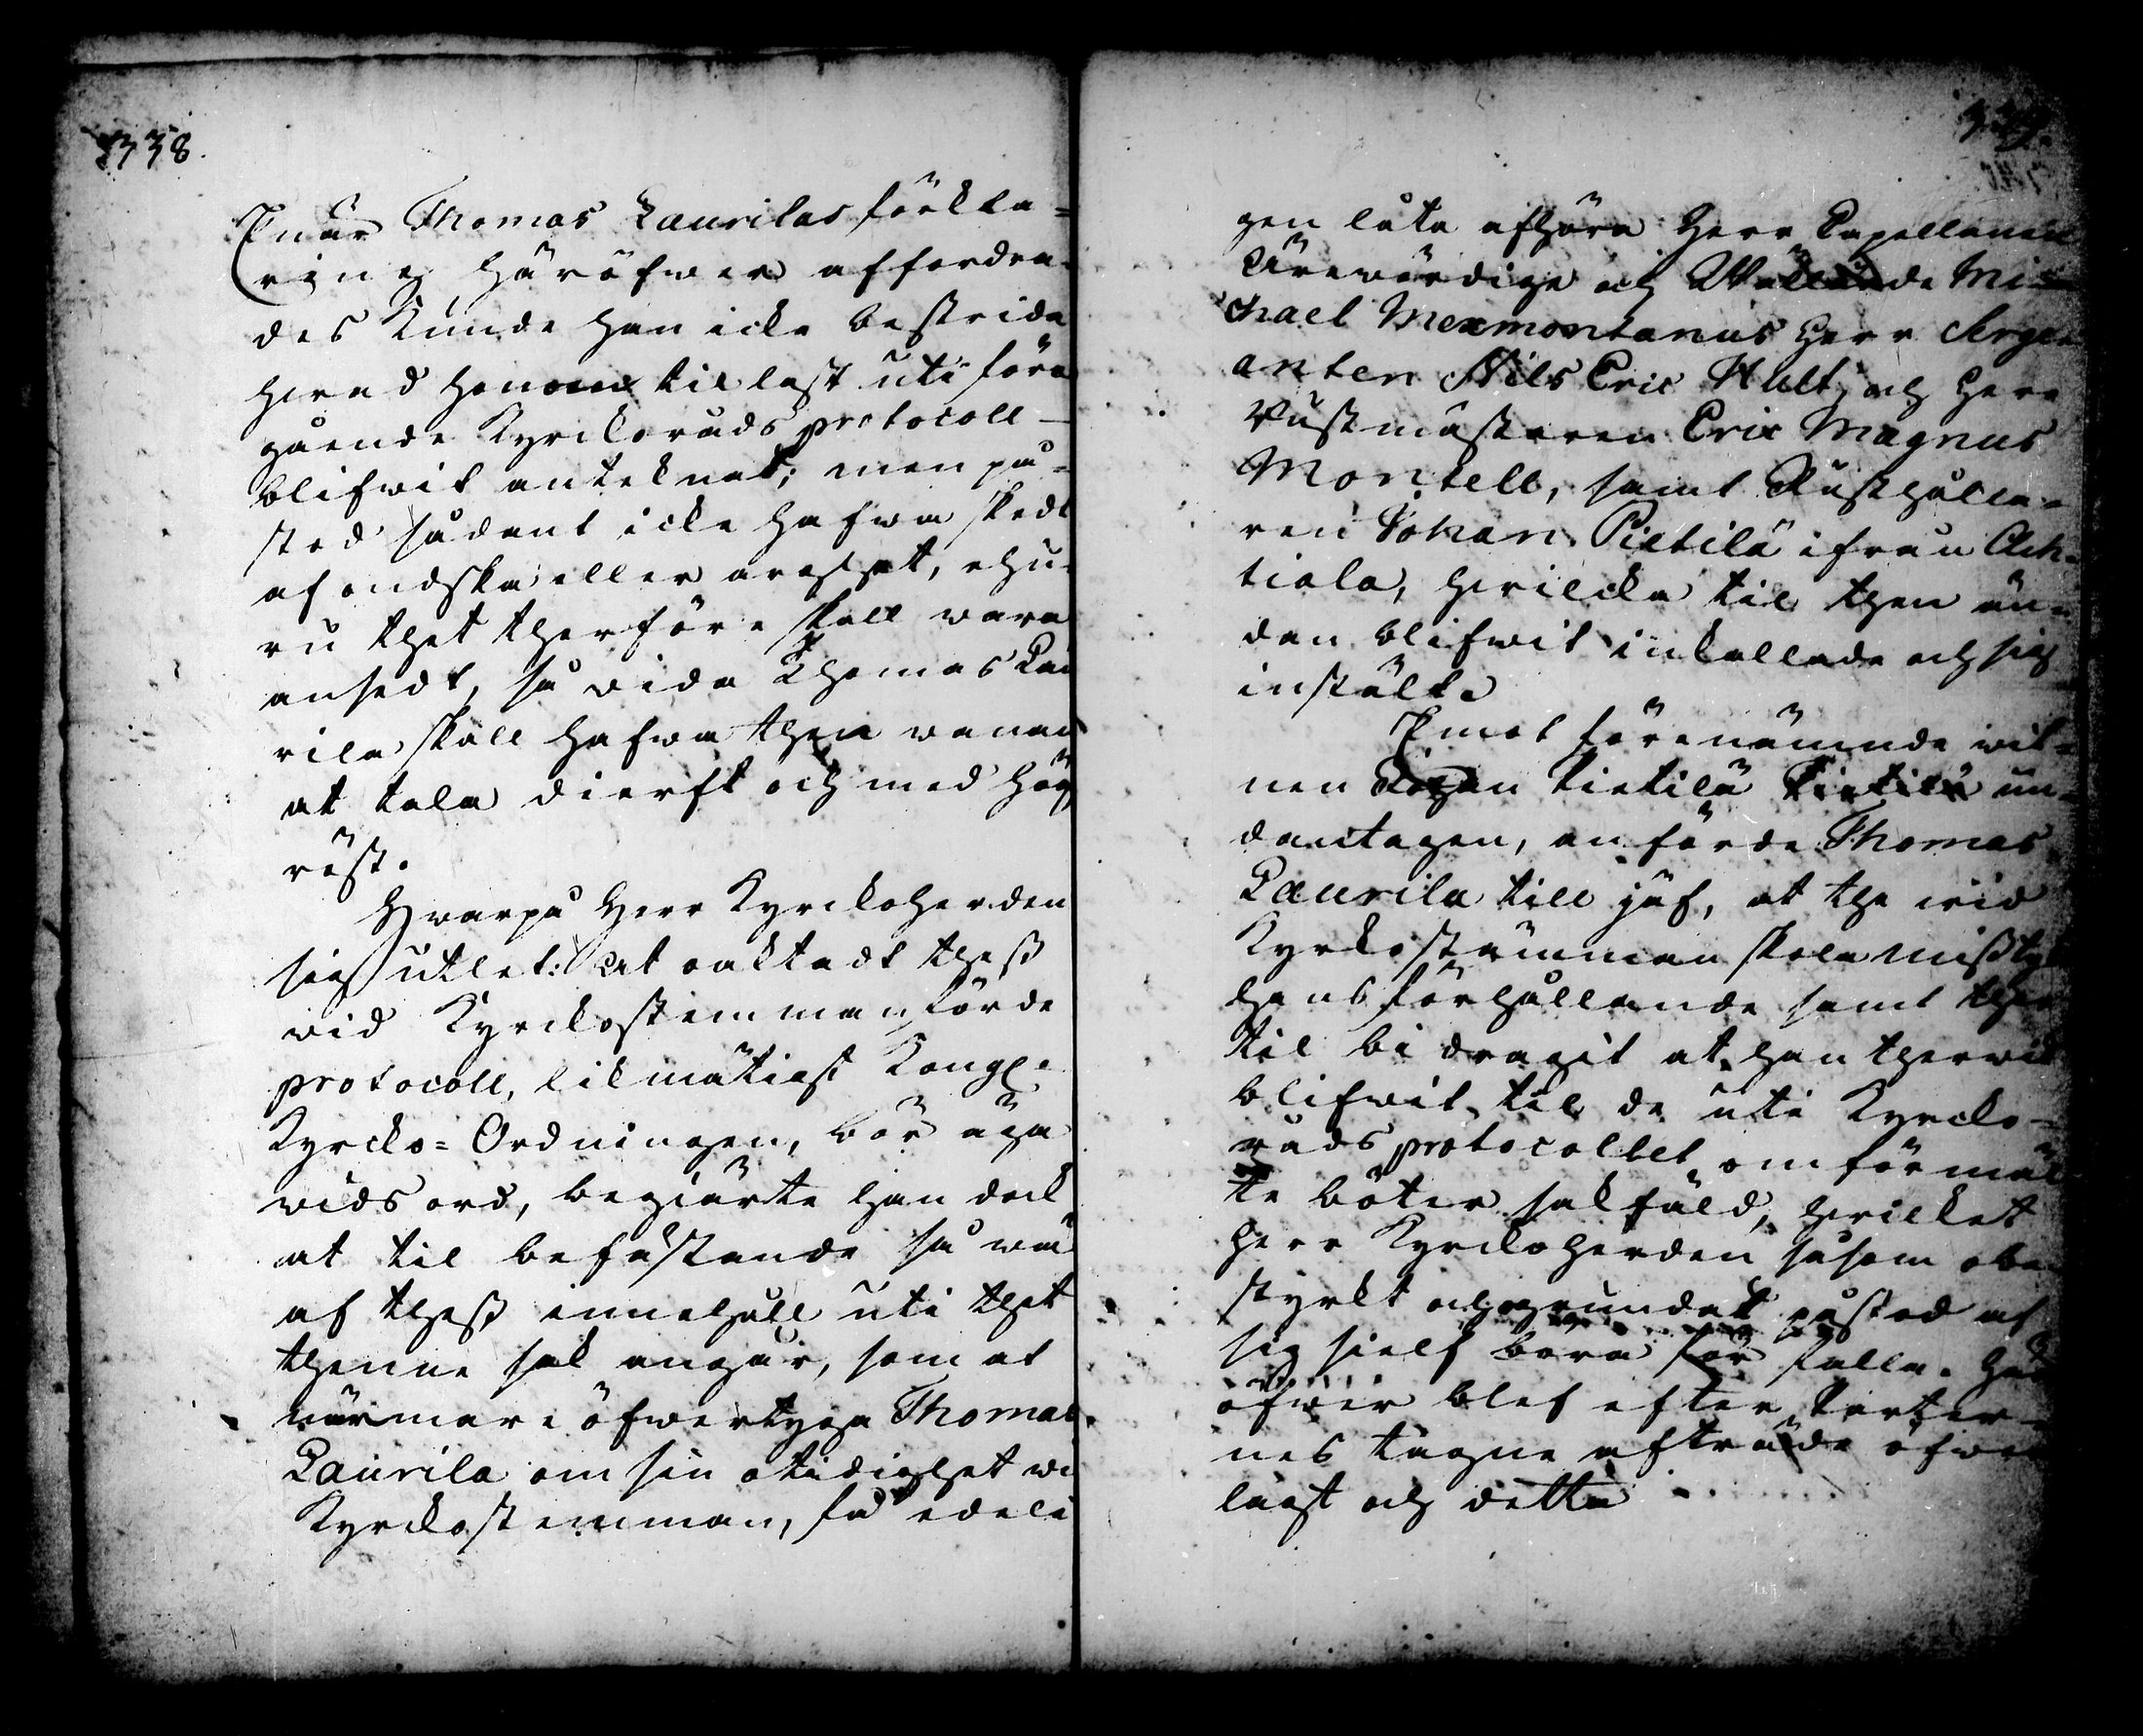 338.
Enär Thomas Laurilas förkla=
ring häröfwer affordra-
des kunde han icke bestrida
hwad honom til last uti före
gående Kyrckoråds protocoll
blifwit anteknat; men på=
stod sådant icke hafwa skedt
af ondska eller argghet, ehu-
ru thet therföre skall wara
ansedt, så vida Thomas Lau
rila skall hafwa then wanan
at tala dierft och med hög
röst.
Hwarpå Herr Kyrckoherden
sig utlet: At oaktadt theß
vid Kyrckostemman förde
protocoll, likmätigt Kongl.
Kyrcko=Ordningen, bör äga
vids ord, begiärte han dock
at til befästande så wäl
af theß innehåll uti thet
thenne sak angår, som at
närmare öfwertyga Thomas
Laurila om sin otidighet wi
Kyrckostemman, få edeli
339.
gen låta afhöra Herr Capellanen
Ärewördige och Wällärde Mi=
chael Mexmontanus Herr Serge-
anten Nils Eric Hult, och Herr
Rustmästaren Eric Magnus
Montell, samt Rusthålla=
ren Johan Pietilä ifrån Ach-
tiala, hwilcka til then än-
dan blifwit inkallade och sig
instält.
Emot förenämnde wit=
nen Johan Pietilä un-
dantagen, anförde Thomas
Laurila till jäf, at the wid
Kyrkostämman skola mißtyckt
hans förhållande samt ther
til bidragit at han therwid
blifwit til de uti Kyrcko=
råds protocollet omförmäl
te böter sakfäld, hwilket
Herr Kyrckoherden såsom obe
styrkt och ogrundat påstod af
sig sielf böra förfalla. Här
öfwer blef efter Parter-
nes tagne afträde öfwer
lagt och detta